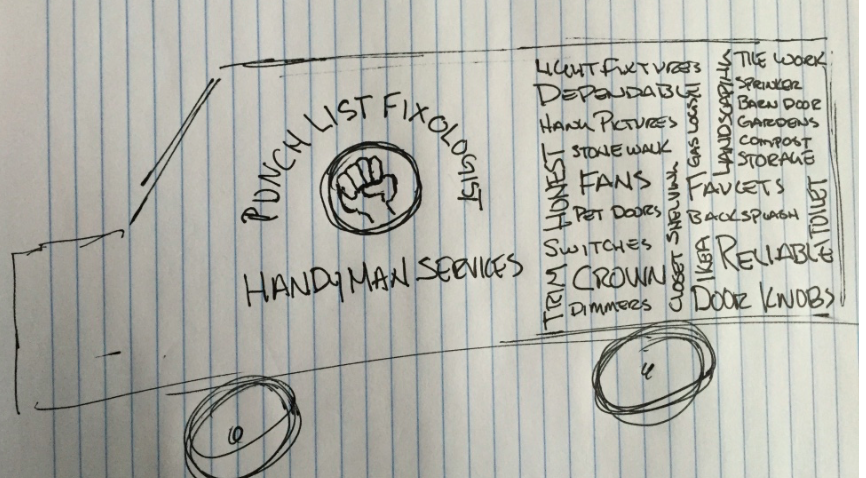 PUNCH LIST FIXOLOGIST
HANDYMAN SERVICES
LIGHT FIXTURES
DEPENDABLE
HANG PICTURES
STONE WALK
HONEST
FANS
PET DOORS
SWITCHES
TRIM
CROWN
DIMMERS
CLOSET SHELVING
GAS LOGSET
LANDSCAPING
TILE WORK
SPRINKER
BARN DOOR
GARDENS
COMPOST
STORAGE
FAUCETS
BACKSPLASH
TOILET
IKEA
RELIABLE
DOOR KNOBS